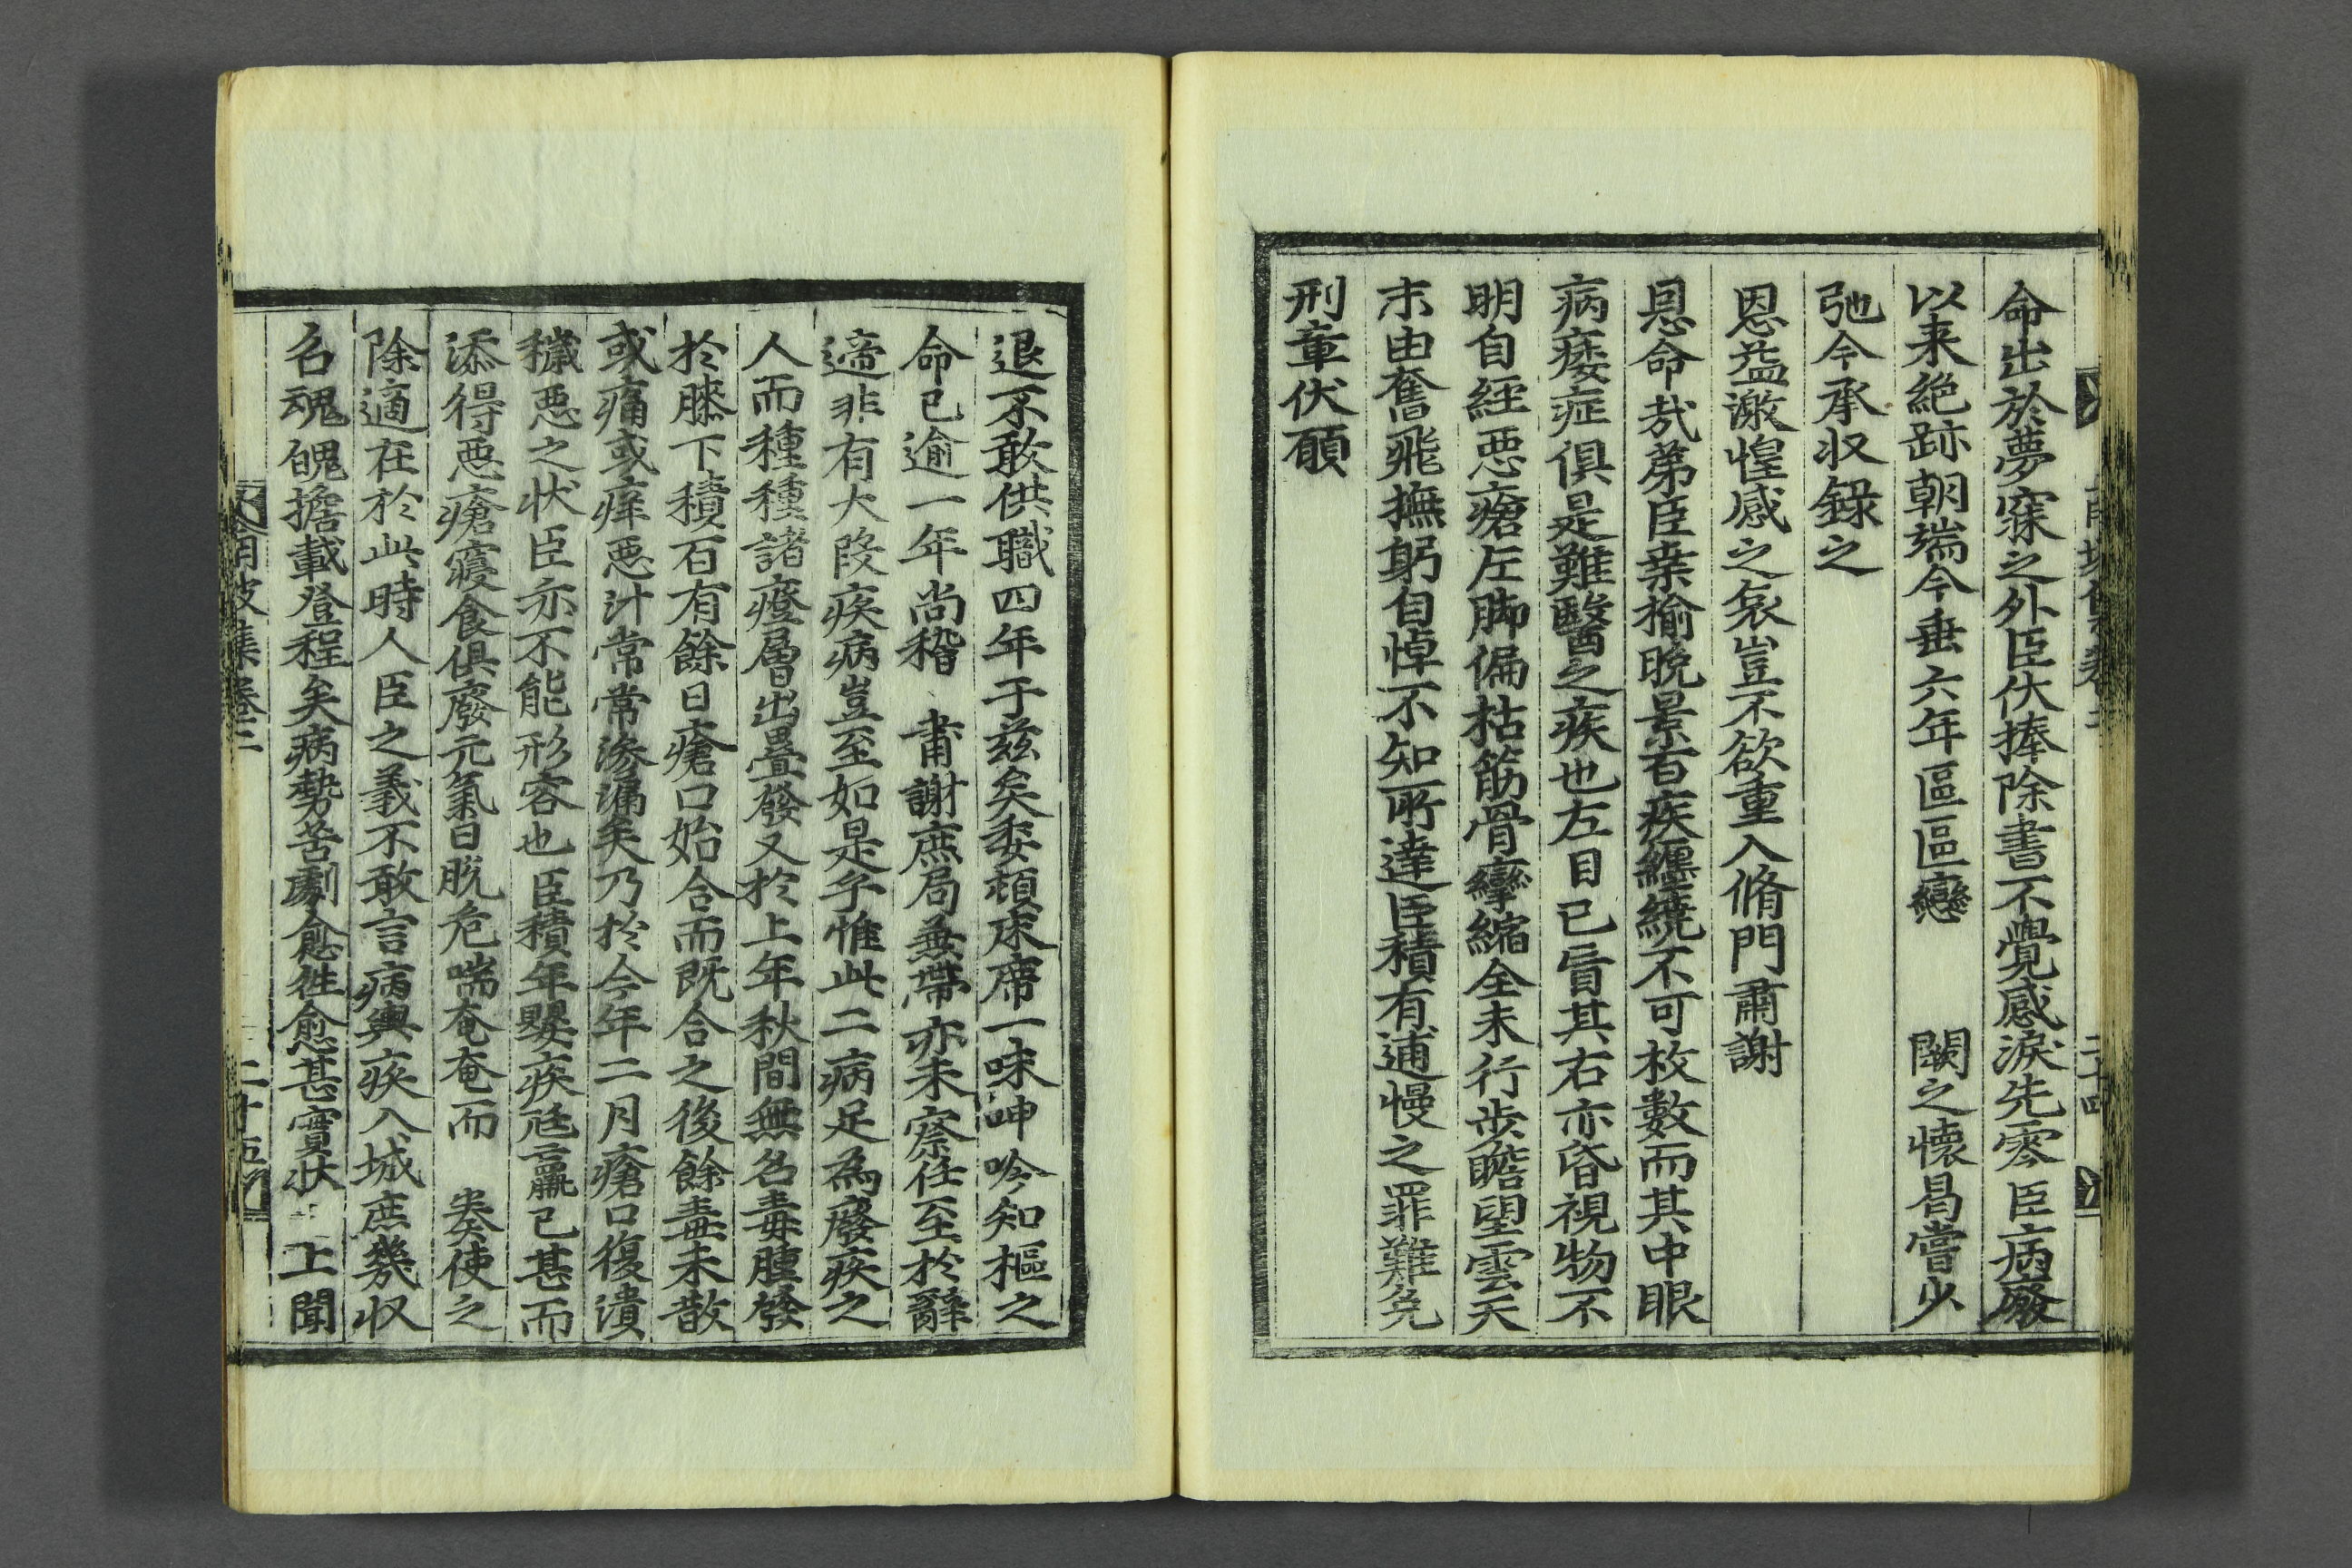 命出於夢寐之外臣伏捧除書不覺感淚先零臣病廢
以来絶跡朝端今垂六年區區戀 闕之懷曷嘗少
弛今承収録之
恩益激惶感之衷豈不欲重入脩門肅謝
恩命㢤第臣桑楡晩景百疾纒繞不可枚數而其中眼
病痿症俱是難醫之疾也左目已盲其右亦昏視物不
明自經惡瘡左脚偏枯筋骨攣縮全未行步瞻望雲天
末由奮飛撫躬自悼不知所達臣積有逋慢之罪難免
刑章伏願
二十四
退不敢供職四年于兹矣委頓床席一味呻吟知樞之
命已逾一年尚稽 肅謝庶局兼帶亦未察任至於辭
適非有大段疾病豈至如是乎惟此二病足為廢疾之
人而種種諸證層出疊發又於上年秋間無名毒腫發
於膝下積百有餘日瘡口始合而既合之後餘毒未散
或痛或痒惡汁常常滲漏矣乃於今年二月瘡口復潰
穢惡之状臣亦不能形容也臣積年嬰疾尫羸已甚而
添得惡瘡寢食俱廢元氣日脱危喘奄奄而 奏使之
除適在於此時人臣之義不敢言病輿疾入城庶幾収
召魂魄擔載登程矣病勢苦劇愈徃愈甚實狀 上聞
集卷三
二十五